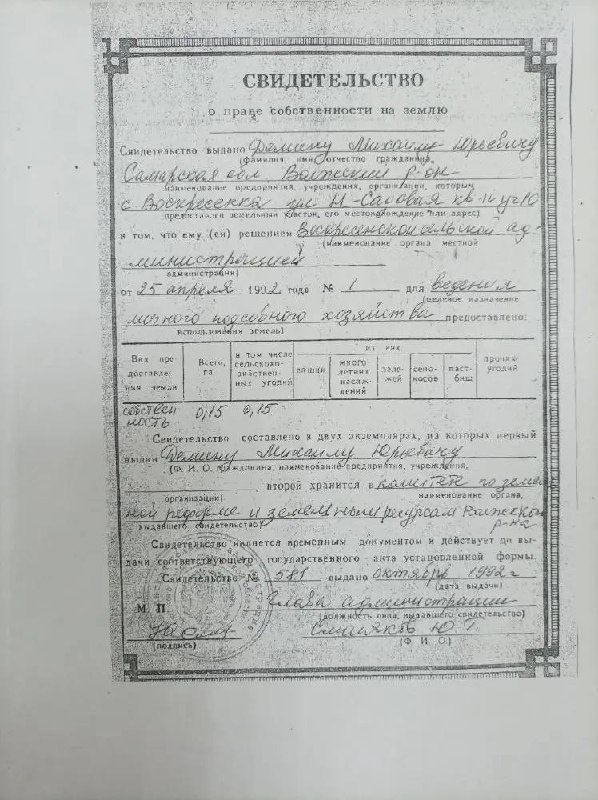 СВИДЕТЕЛЬСТВО
о праве собственности на землю
Свидетельство выдано Демину Михаилу Юрьевичу
(фамилия имя отчество гражданина,
Самарская обл. Волжский р-он
наименование предприятия, учреждения, организации, которым
с Воскресенка ул Н-Садовая кв-14 уч 10
предоставлен земельный участок, его местонахождение или адрес)
в том, что ему (ей) решением Воскресенской сельской ад-
(наименование органа местной
министрацией
администрации)
от 25 апреля 1992 года № 1 для ведения
(целевое назначение
личного подсобного хозяйства предоставлено:
использования земель)
из них
Вид предоставления земли
Всего, га
в том числе сельскохозяйственных угодий
пашни
многолетних насаждений
залежей
сенокосов
пастбищ
прочих угодий
собственность 0,15 0,15
Свидетельство составлено в двух экземплярах, из которых первый
выдан Демину Михаилу Юрьевичу
(Ф. И. О. гражданина, наименование предприятия, учреждения,
второй хранится в комитете по земель
организации) наименование органа,
ной реформе и земельным ресурсам Волжского
выдавшего свидетельство) р-на
Свидетельство является временным документом и действует до вы-
дачи соответствующего государственного акта установленной формы.
Свидетельство № 581 выдано октябрь 1992 г
(дата выдачи)
М П Глава администрации
должность лица, выдавшего свидетельство)
(подпись) (Ф. И. О.)